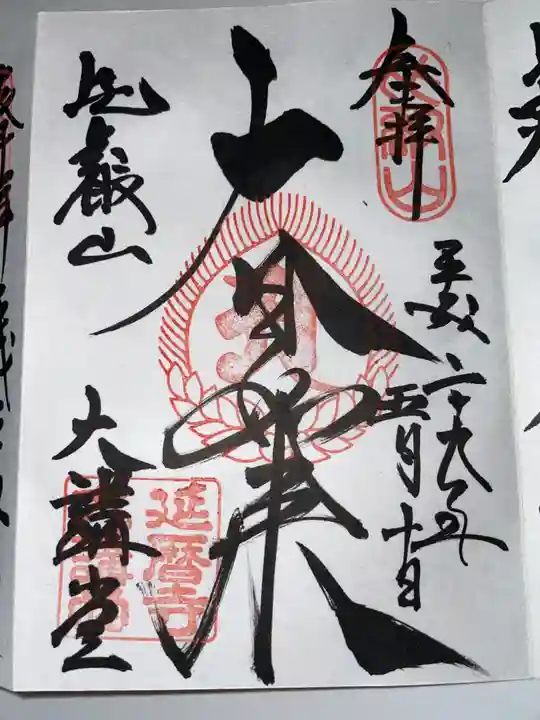 奉拝
平成二十九年
五月十日
大日如来
比叡山
大講堂
比叡山
延暦寺